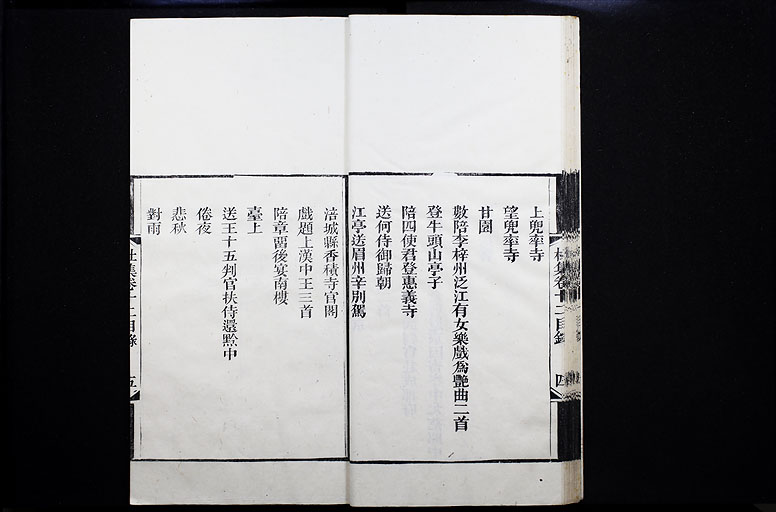 上兜率寺
望兜率寺
甘園
數陪李梓州泛江有女樂戲為艷曲二首
登牛頭山亭子
陪四使君登惠義寺
送何侍御歸朝
江亭送眉州辛別駕
涪城縣香積寺官閣
戲題上漢中王三首
陪章留後宴南樓
臺上
送王十五判官扶侍還黔中
倦夜
悲秋
對雨
杜集卷十二目錄
五